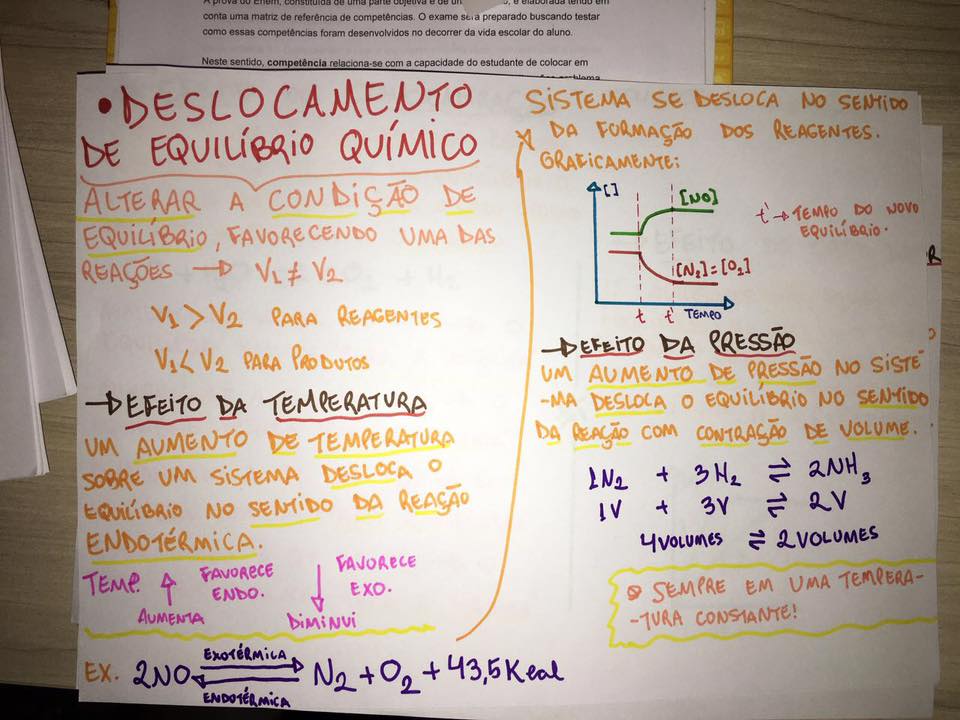 A prova do Enem, constituída de uma parte objetiva e de um
conta uma matriz de referência de competências. O exame será preparado buscando testar
como essas competências foram desenvolvidos no decorrer da vida escolar do aluno.
Neste sentido, competência relaciona-se com a capacidade do estudante de colocar em
• DESLOCAMENTO
DE EQUILÍBRIO QUÍMICO
ALTERAR A CONDIÇÃO DE
EQUILÍBRIO, FAVORECENDO UMA DAS
REAÇÕES → V1 ≠ V2
V1 > V2 PARA REAGENTES
V1 < V2 PARA PRODUTOS
→ EFEITO DA TEMPERATURA
UM AUMENTO DE TEMPERATURA
SOBRE UM SISTEMA DESLOCA O
EQUILÍBRIO NO SENTIDO DA REAÇÃO
ENDOTÉRMICA.
TEMP. ↑ FAVORECE ENDO. ↓ FAVORECE EXO.
AUMENTA DIMINUI
EXOTÉRMICA
EX. 2NO ⇌ N2 + O2 + 43,5Kcal
ENDOTÉRMICA
SISTEMA SE DESLOCA NO SENTIDO
DA FORMAÇÃO DOS REAGENTES.
GRAFICAMENTE:
[ ]
[NO]
[N2]=[O2]
t t' TEMPO
t' → TEMPO DO NOVO
EQUILÍBRIO.
R
→ EFEITO DA PRESSÃO
UM AUMENTO DE PRESSÃO NO SISTE
-MA DESLOCA O EQUILÍBRIO NO SENTIDO
DA REAÇÃO COM CONTRAÇÃO DE VOLUME.
1N2 + 3H2 ⇌ 2NH3
1V + 3V ⇌ 2V
4VOLUMES ⇌ 2VOLUMES
SEMPRE EM UMA TEMPERA-
-TURA CONSTANTE!